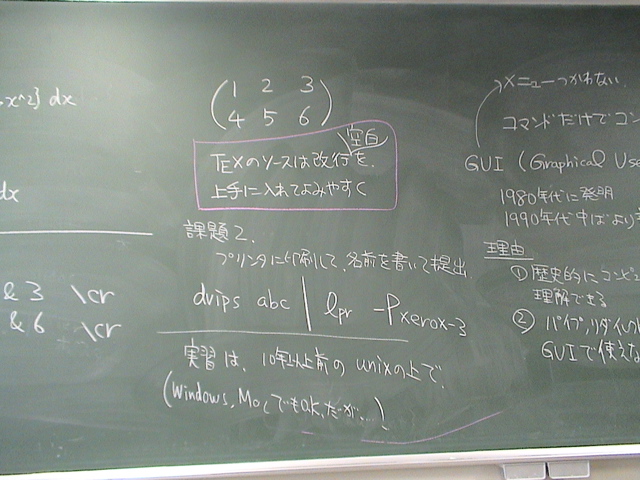 x^2} dx
dx
& 3 \cr
& 6 \cr
(1 2 3
4 5 6)
空白
TEXのソースは改行を、
上手に入れてよみやすく
課題2.
プリンタに印刷して、名前を書いて提出.
dvips abc | lpr -Pxerox-3
実習は、10年以上前の unixの上で.
(Windows, Macでもok.だが...)
メニューつかわない
コマンドだけでコン
GUI (Graphical Use
1980年代に発明
1990年代中ばより
理由
① 歴史的にコンピュ
理解できる
② パイプ,リダイレ
GUIで使えな